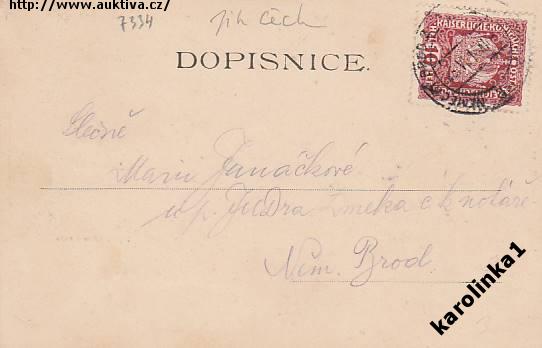 http://www.auktiva.cz/
7334
jih Čech
DOPISNICE.
KAISERLICHE KÖNIGLICHE
10
Slečně
Marii Janáčkové
u p. JUDra Zmeka c. k. notáře
Něm. Brod.
karolinka1